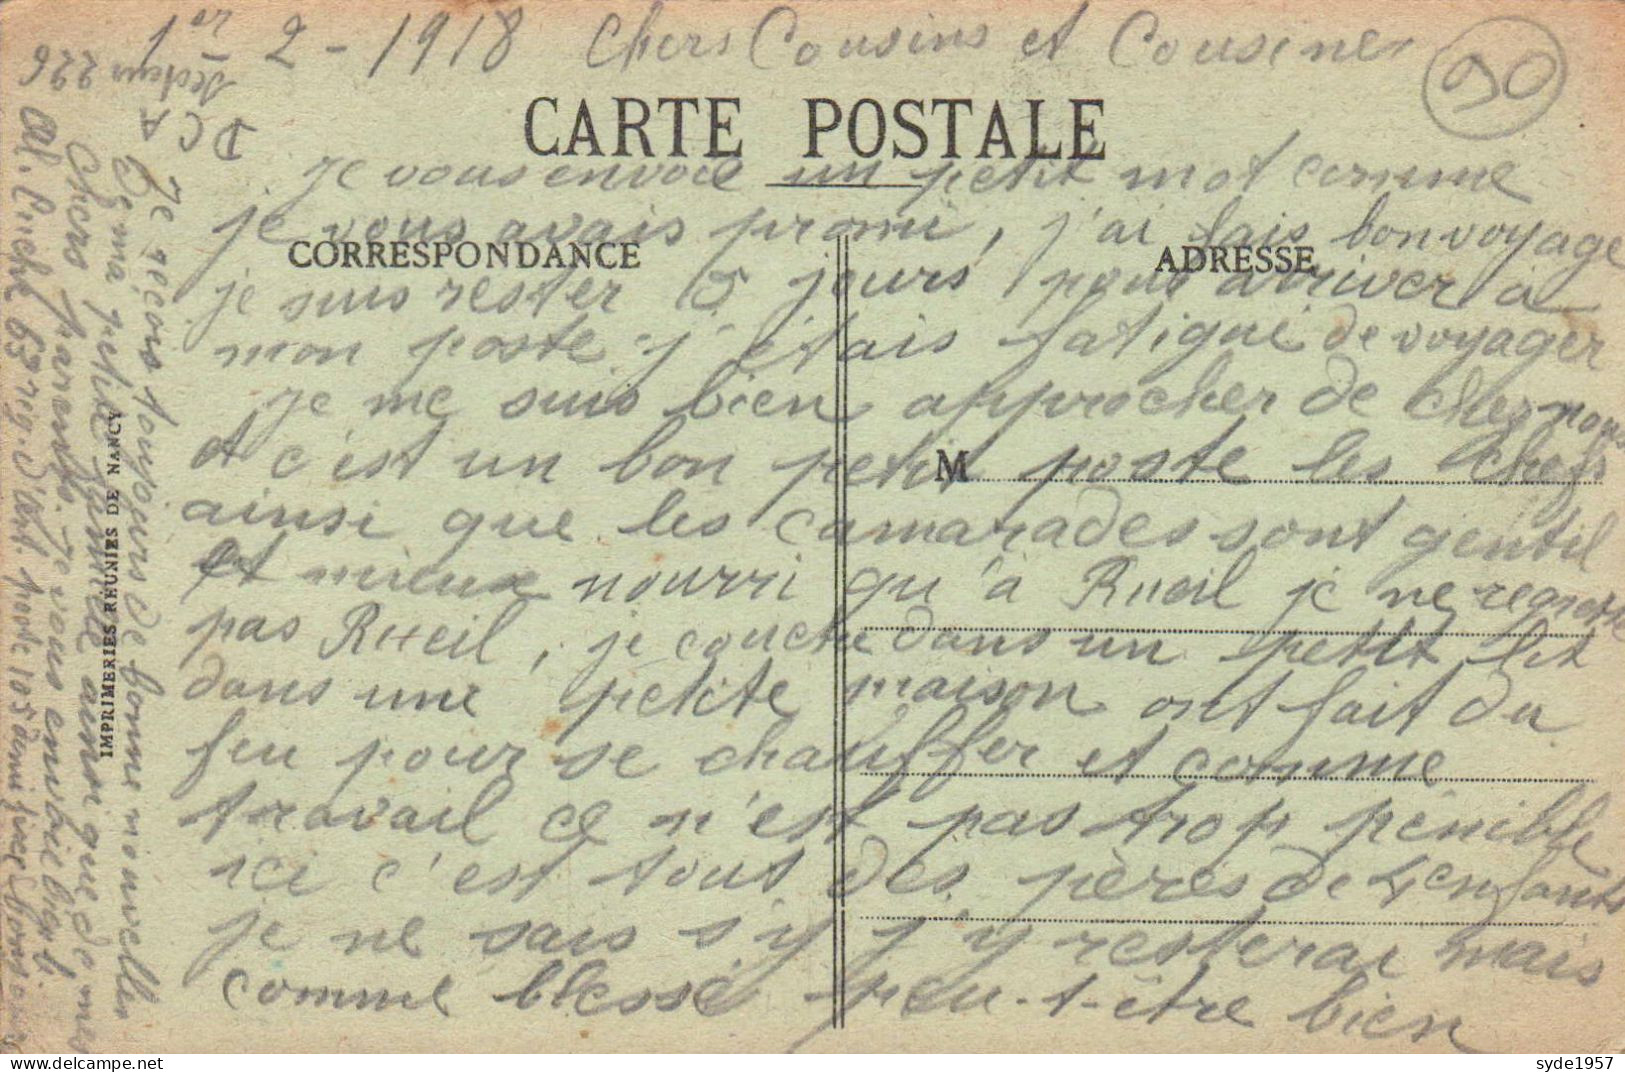 1er - 2 - 1918 Chers Cousins et Cousines
90
CARTE POSTALE
Je vous envoie un petit mot comme
je vous avais promi, j'ai fais bon voyage
CORRESPONDANCE
ADRESSE
je suis rester 5 jours pour arriver à
mon poste j'étais fatigué de voyager
je me suis bien approcher de chez nous
et c'est un bon petit poste les chefs
M
ainsi que les camarades sont gentil
et mieux nourri qu'à Rueil je ne regrette
pas Rueil, je couche dans un petit lit
dans une petite maison ont fait du
feu pour se chauffer et comme
travail ce n'est pas trop pénible
ici c'est tout des pères de 4 enfants
je ne sais s'y j'y resterai mais
comme blessé peu-t-être bien
Je reçois toujours de bonne nouvelles
de ma petite famille ainsi que de mes
Chers parents. Je vous envoie bien
63 rég. d'art. poste 105
D C A
Secteur 226
IMPRIMERIES RÉUNIES DE NANCY
syde1957